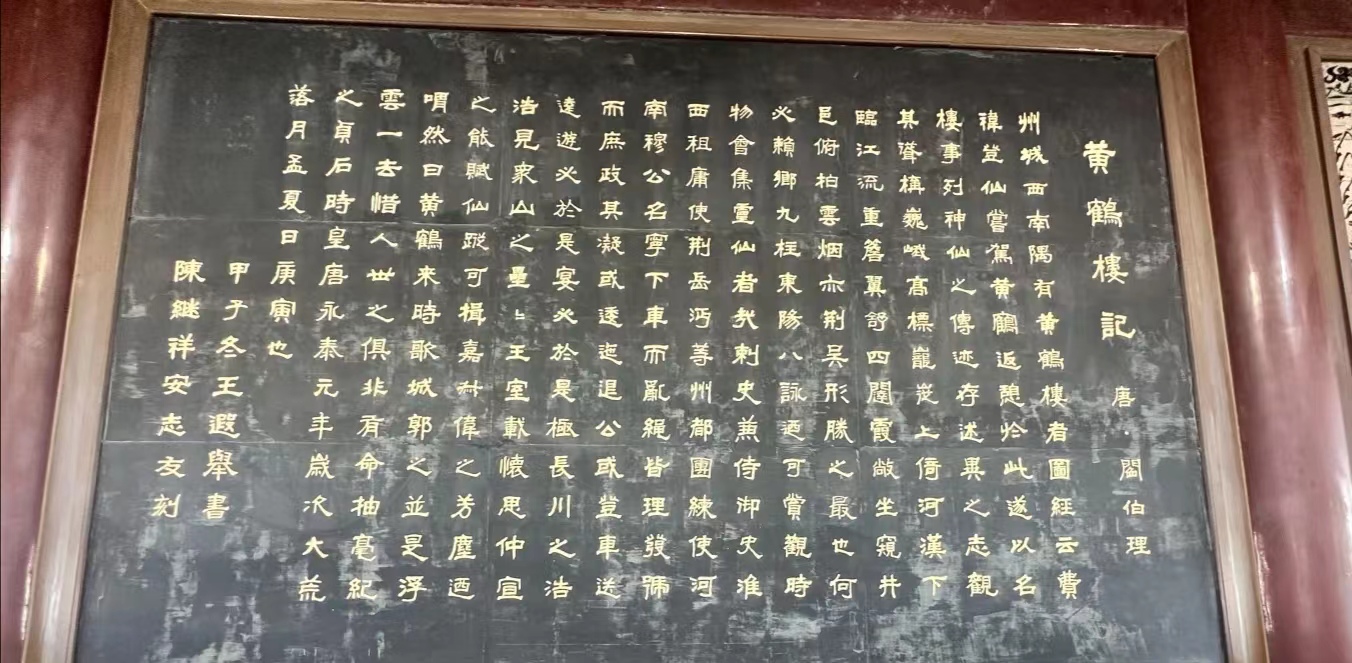 黄鶴樓記 唐·閻伯理
州城西南隅有黄鶴樓者圖經云費
禕登仙嘗駕黄鶴返憩於此遂以名
樓事列神仙之傳迹存述異之志觀
其聳構巍峨髙標巃嵸上倚河漢下
臨江流重簷翼舒四闥霞敞坐窺井
邑俯拍雲烟亦荆吳形勝之最也何
必賴鄉九柱東陽八詠迺可賞觀時
物會集靈仙者㢤刺史兼侍御史淮
西租庸使荆岳沔等州都團練使河
南穆公名寧下車而亂繩皆理發號
而庶政其凝或逶迤退公或登車送
遠遊必於是宴必於是極長川之浩
浩見衆山之壘〻王室載懷思仲宣
之能賦仙蹤可揖嘉叔偉之芳塵迺
喟然曰黄鶴來時歌城郭之並是浮
雲一去惜人世之俱非有命抽毫紀
之貞石時皇唐永泰元年歲次大荒
落月孟夏日庚寅也
甲子冬王遐舉書
陳継祥安志友刻